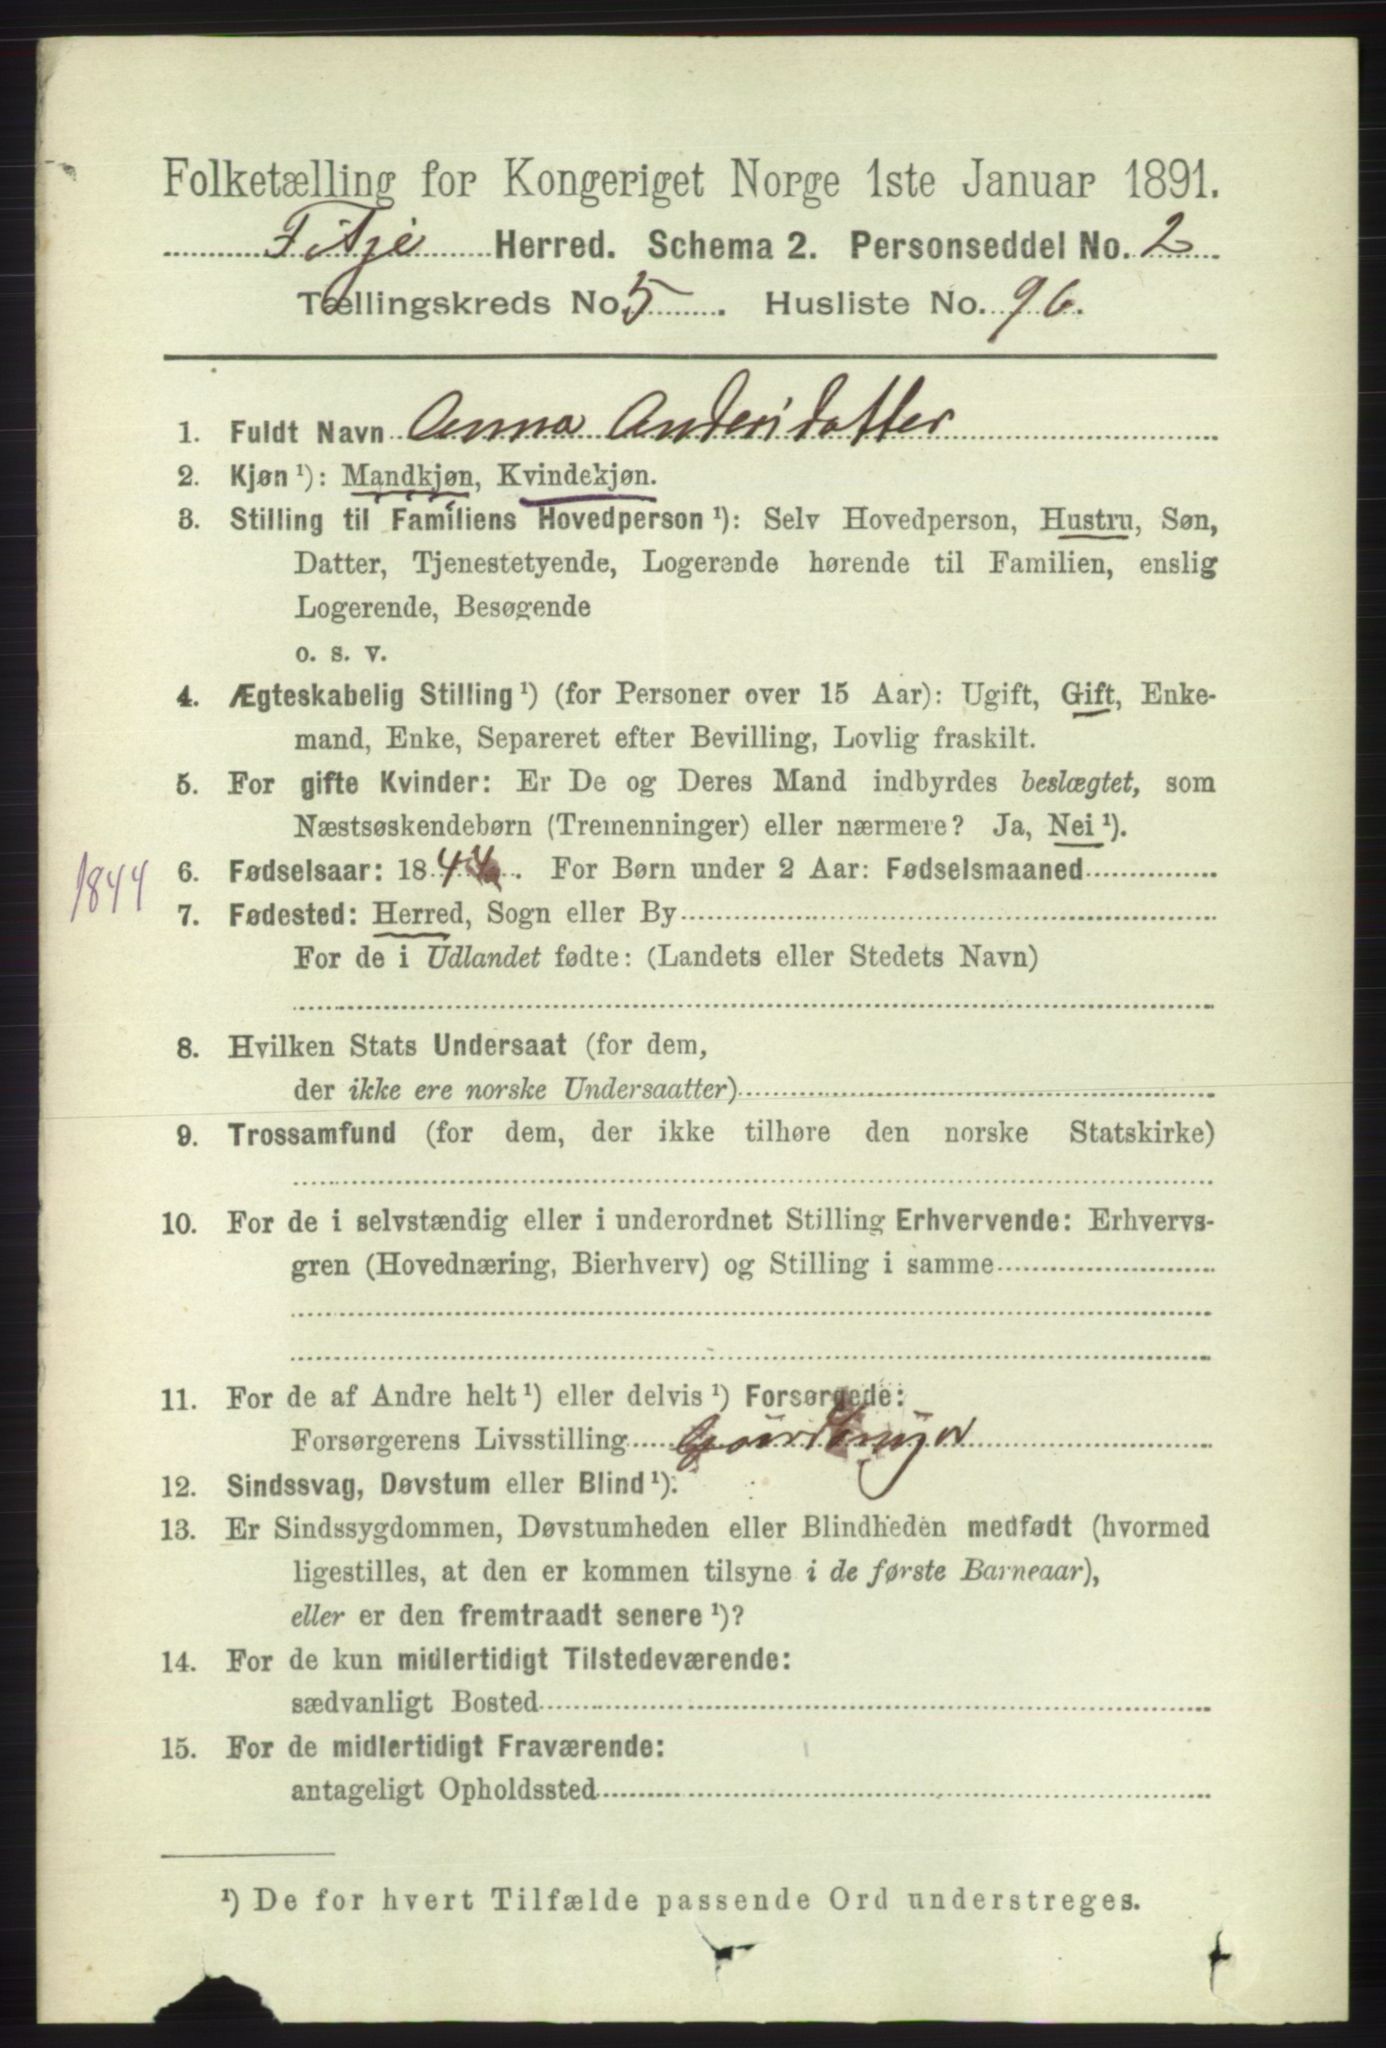 Folketælling for Kongeriget Norge 1ste Januar 1891.
Fitje Herred. Schema 2. Personseddel No. 2
Tællingskreds No. 5. Husliste No. 96.
1. Fuldt Navn Anna Andersdatter
2. Kjøn¹): Mandkjøn, Kvindekjøn.
3. Stilling til Familiens Hovedperson¹): Selv Hovedperson, Hustru, Søn,
Datter, Tjenestetyende, Logerende hørende til Familien, enslig
Logerende, Besøgende
o. s. v.
4. Ægteskabelig Stilling¹) (for Personer over 15 Aar): Ugift, Gift, Enke-
mand, Enke, Separeret efter Bevilling, Lovlig fraskilt.
5. For gifte Kvinder: Er De og Deres Mand indbyrdes beslægtet, som
Næstsøskendebørn (Tremenninger) eller nærmere? Ja, Nei¹).
1844
6. Fødselsaar: 1844. For Børn under 2 Aar: Fødselsmaaned
7. Fødested: Herred, Sogn eller By
For de i Udlandet fødte: (Landets eller Stedets Navn)
8. Hvilken Stats Undersaat (for dem,
der ikke ere norske Undersaatter)
9. Trossamfund (for dem, der ikke tilhøre den norske Statskirke)
10. For de i selvstændig eller i underordnet Stilling Erhvervende: Erhvervs-
gren (Hovednæring, Bierhverv) og Stilling i samme
11. For de af Andre helt¹) eller delvis¹) Forsørgede:
Forsørgerens Livsstilling
12. Sindssvag, Døvstum eller Blind¹).
13. Er Sindssygdommen, Døvstumheden eller Blindheden medfødt (hvormed
ligestilles, at den er kommen tilsyne i de første Barneaar),
eller er den fremtraadt senere¹)?
14. For de kun midlertidigt Tilstedeværende:
sædvanligt Bosted
15. For de midlertidigt Fraværende:
antageligt Opholdssted
¹) De for hvert Tilfælde passende Ord understreges.